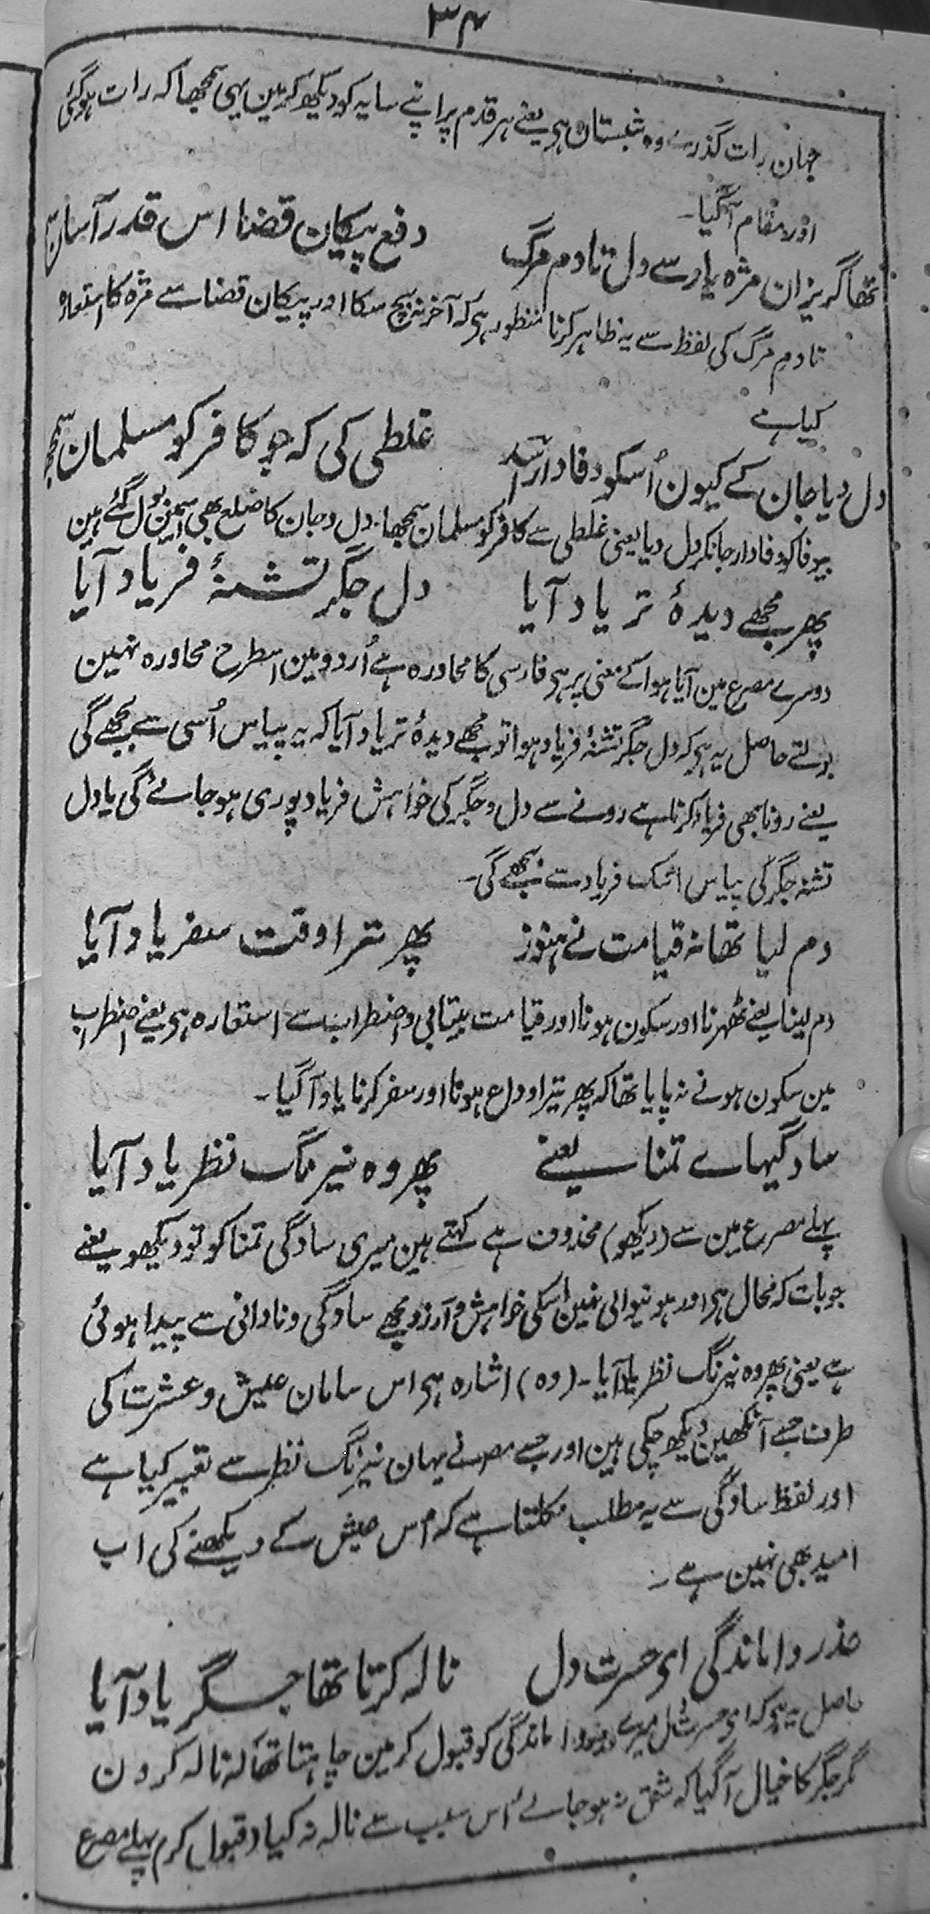 ۳۴
جہان رات گذرے وہ شبستان ہی یعنے ہر قدم پر اپنے سایہ کو دیکھ کر مین یہی سمجھا کہ رات ہو گئی
اور مقام آگیا۔
تھا گریزان مژہ یار سے دل تا دم مرگ دفع پیکان قضا اس قدر آسان
تا دم مرگ کی لفظ سے یہ ظاہر کرنا منظور ہی کہ آخر نہ بچ سکا اور پیکان قضا سے مژہ کا استعارہ
کیا ہے
دل دیا جان کے کیون اُسکو وفادار اسد غلطی کی کہ جو کافر کو مسلمان سمجھا
بیوفا کو وفادار جانکر دل دیا یعنی غلطی سے کافر کو مسلمان سمجھا۔ دل و جان کا ضلع بھی اسمین بول گئے ہین
پھر مجھے دیدۂ تر یاد آیا دل جگر تشنۂ فریاد آیا
دوسرے مصرع مین آیا ہوا کے معنی پر ہی فارسی کا محاورہ ہے اُردو مین اسطرح محاورہ نہین
بولتے حاصل یہ ہی کہ دل جگر تشنۂ فریاد ہوا تو مجھے دیدۂ تر یاد آیا کہ یہ پیاس اُسی سے بجھے گی
یعنے رونا بھی فریاد کرنا ہے رونے سے دل و جگر کی خواہش فریاد پوری ہو جائے گی یا دل
تشنہ جگر کی پیاس اشک فریاد سے بجھے گی۔
دم لیا تھا نہ قیامت نے ہنوز پھر ترا وقت سفر یاد آیا
دم لینا یعنے ٹھہرنا اور سکون ہونا اور قیامت بیتابی و اضطراب سے استعارہ ہی یعنے اضطراب
مین سکون ہونے نہ پایا تھا کہ پھر تیرا وداع ہونا اور سفر کرنا یاد آگیا۔
سادگیہاے تمنا یعنے پھر وہ نیرنگ نظر یاد آیا
پہلے مصرع مین سے (دیکھو) محذوف ہے کہتے ہین میری سادگی تمنا کو تو دیکھو یعنے
جو بات کہ محال ہی اور ہونیوالی نہین اُسکی خواہش و آرزو مجھے سادگی و نادانی سے پیدا ہوئی
ہے یعنی پھر وہ نیرنگ نظر یاد آیا۔ (وہ) اشارہ ہی اس سامان عیش و عشرت کی
طرف جسے آنکھین دیکھ چکی ہین اور جسے مصنف نے یہان نیرنگ نظر سے تعبیر کیا ہے
اور لفظ سادگی سے یہ مطلب نکلتا ہے کہ اُس عیش کے دیکھنے کی اب
امید بھی نہین ہے۔
عذر واماندگی ای حسرت دل نالہ کرتا تھا جگر یاد آیا
حاصل یہ ہی کہ ای حسرت دل میرے عذر واماندگی کو قبول کر مین چاہتا تھا کہ نالہ کرون
مگر جگر کا خیال آگیا کہ شق نہ ہو جائے اُس سبب سے نالہ نہ کیا (قبول کر) پہلے مصرع